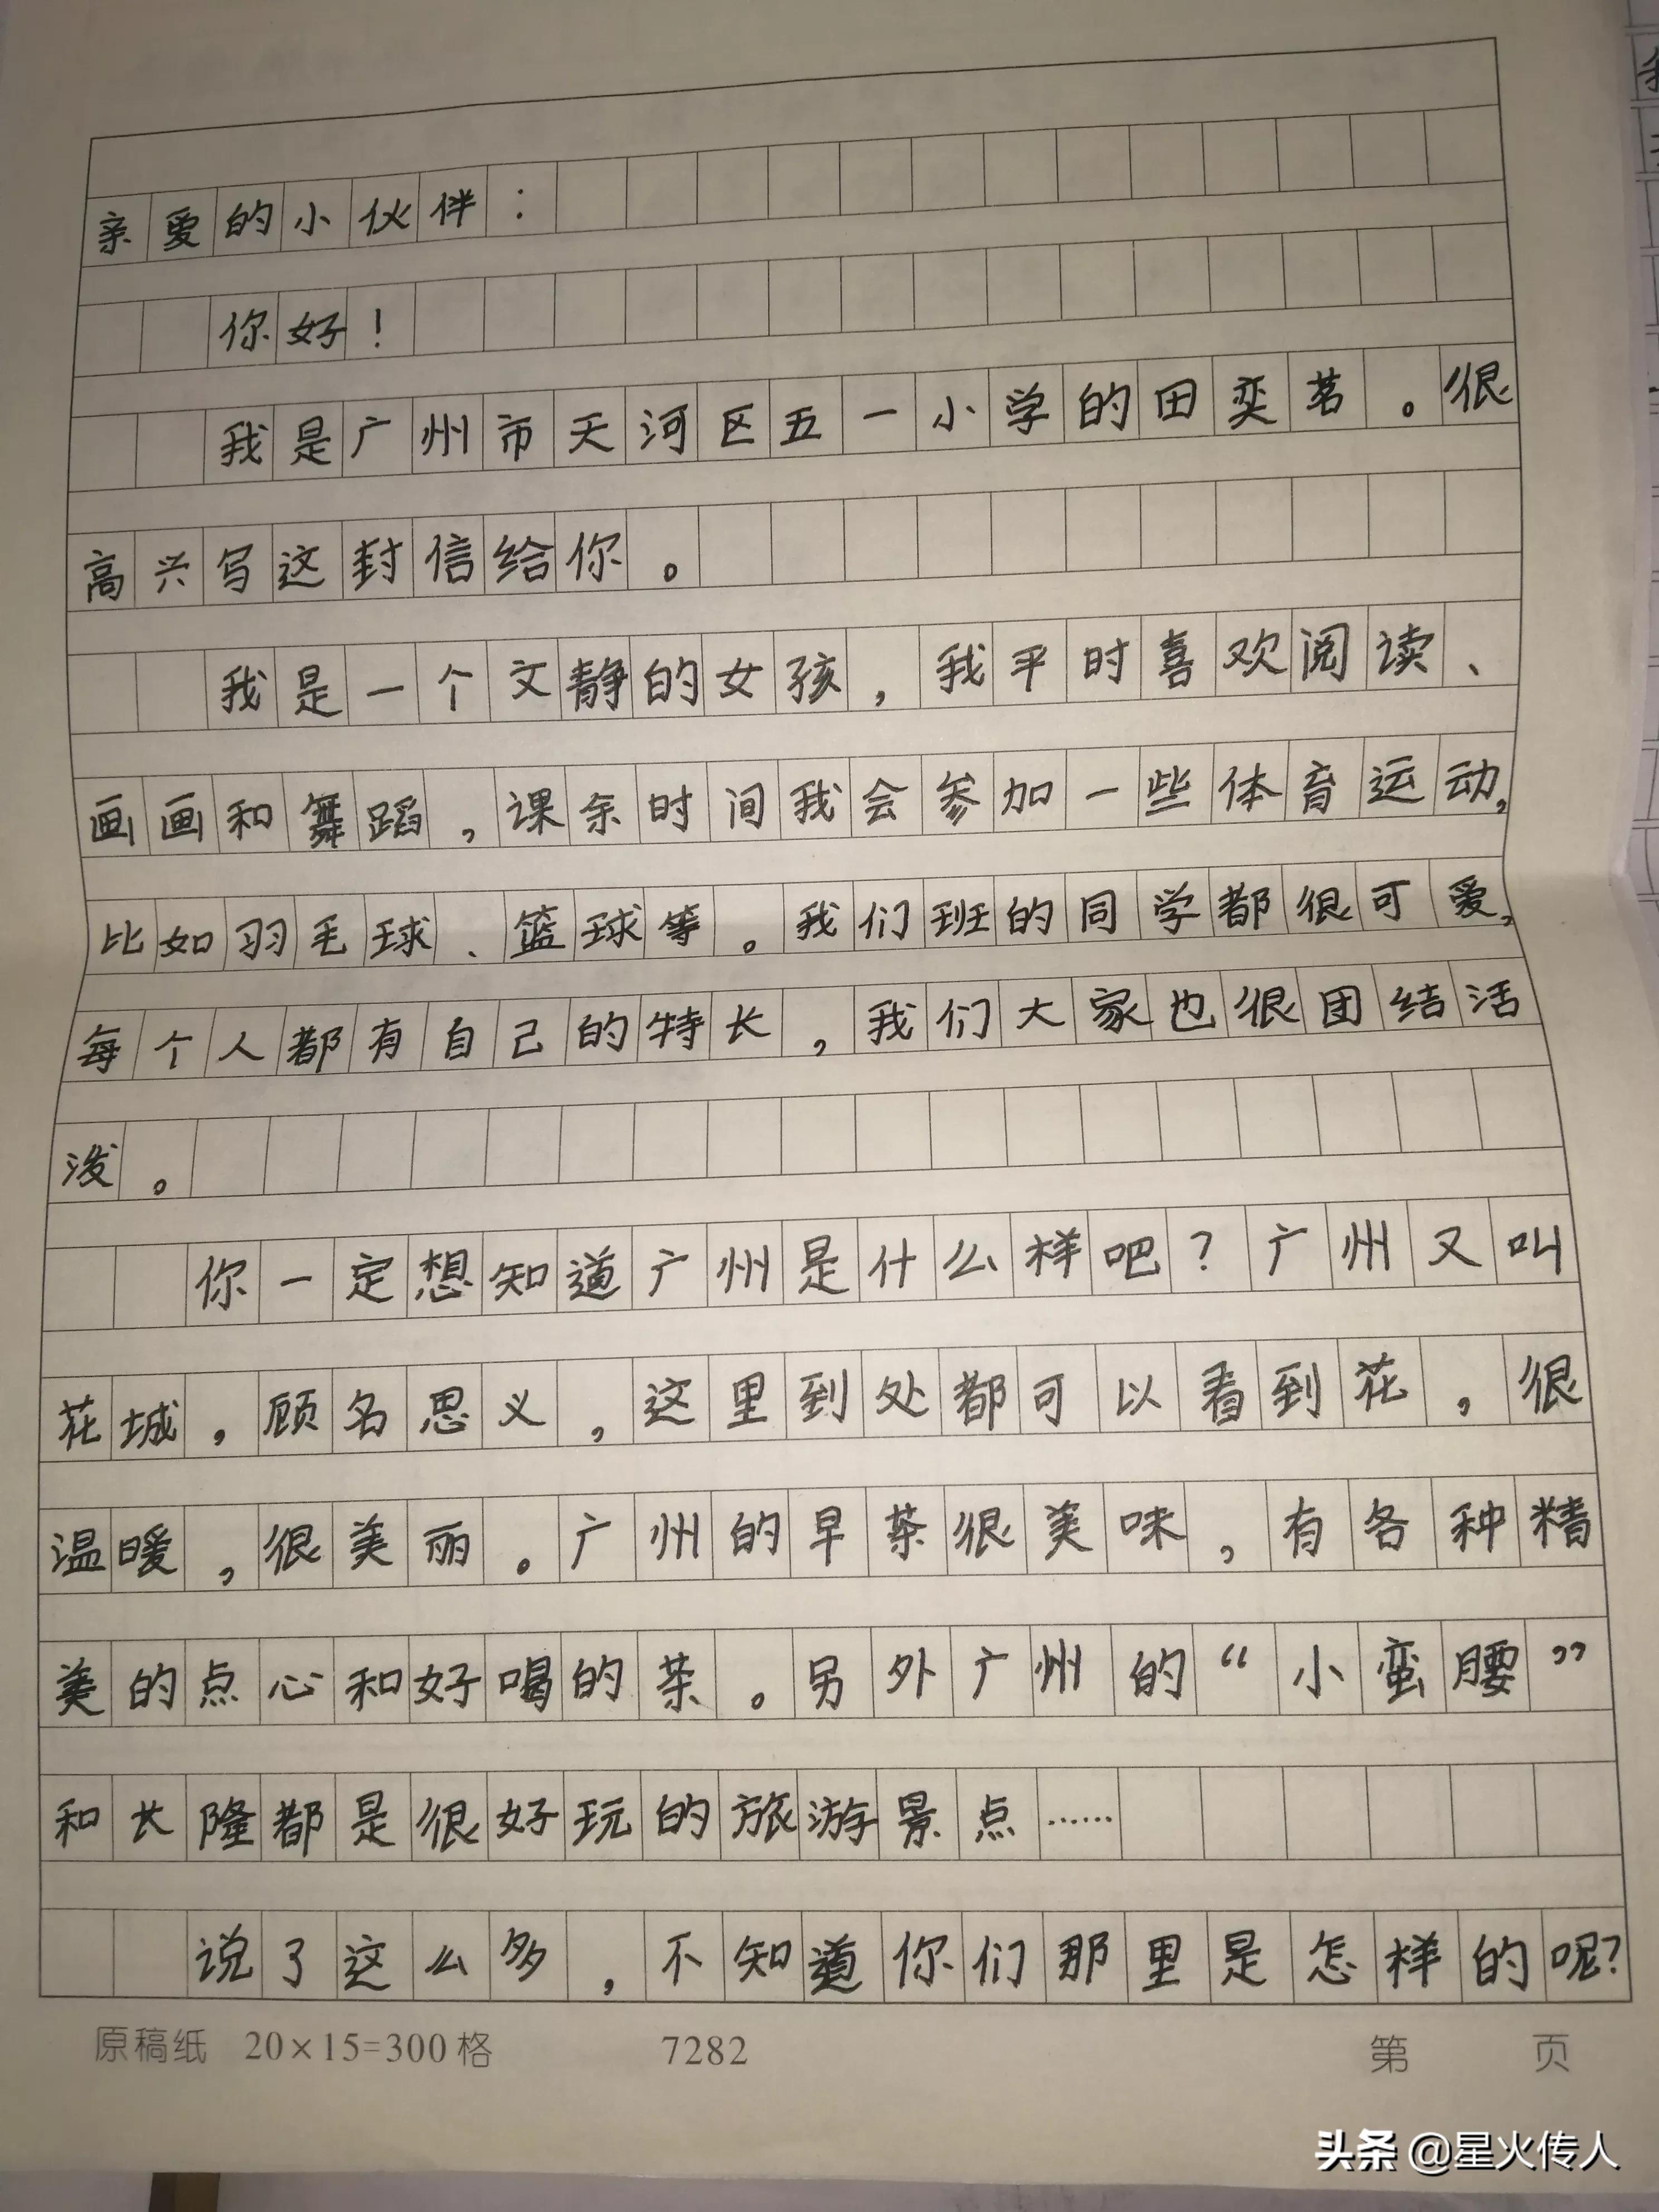 亲爱的小伙伴：
你好！
我是广州市天河区五一小学的田奕茗。很
高兴写这封信给你。
我是一个文静的女孩，我平时喜欢阅读、
画画和舞蹈，课余时间我会参加一些体育运动，
比如羽毛球、篮球等。我们班的同学都很可爱，
每个人都有自己的特长，我们大家也很团结活
泼。
你一定想知道广州是什么样吧？广州又叫
花城，顾名思义，这里到处都可以看到花，很
温暖，很美丽。广州的早茶很美味，有各种精
美的点心和好喝的茶。另外广州的“小蛮腰”
和长隆都是很好玩的旅游景点……
说了这么多，不知道你们那里是怎样的呢？
原稿纸 20×15=300格 7282 第 页
头条 @星火传人